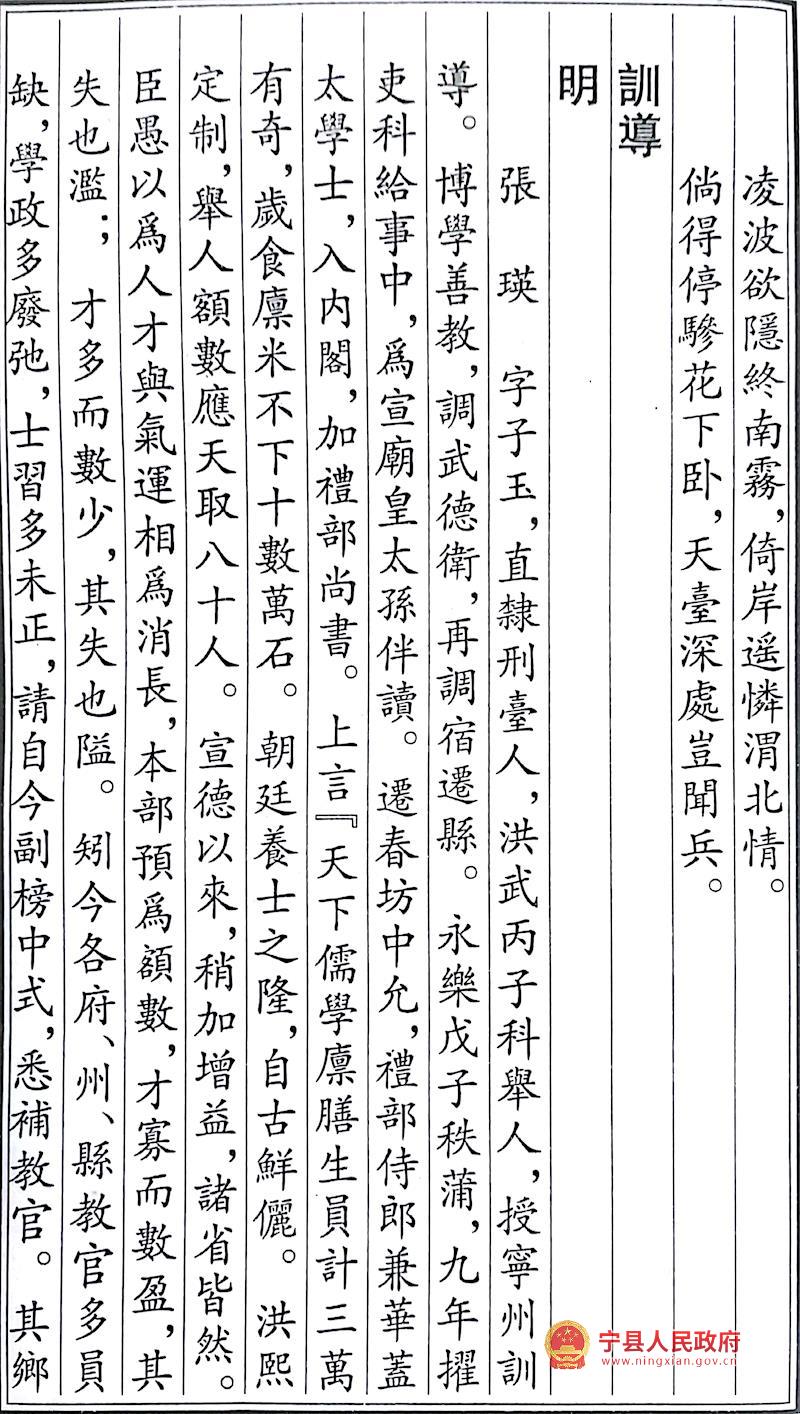 凌波欲隱終南霧，倚岸遥憐渭北情。
倘得停驂花下卧，天臺深處豈聞兵。
訓導
明
張　瑛　字子玉，直隸刑臺人，洪武丙子科舉人，授寧州訓
導。博學善教，調武德衛，再調宿遷縣。永樂戊子秩蒲，九年擢
吏科給事中，爲宣廟皇太孫伴讀。遷春坊中允，禮部侍郎兼華蓋
太學士，入内閣，加禮部尚書。上言『天下儒學廪膳生員計三萬
有奇，歲食廪米不下十數萬石。朝廷養士之隆，自古鮮儷。洪熙
定制，舉人額數應天取八十人。宣德以來，稍加增益，諸省皆然。
臣愚以爲人才與氣運相爲消長，本部預爲額數，才寡而數盈，其
失也濫；才多而數少，其失也隘。矧今各府、州、縣教官多員
缺，學政多廢弛，士習多未正，請自今副榜中式，悉補教官。其鄉
宁县人民政府
www.ningxian.gov.cn